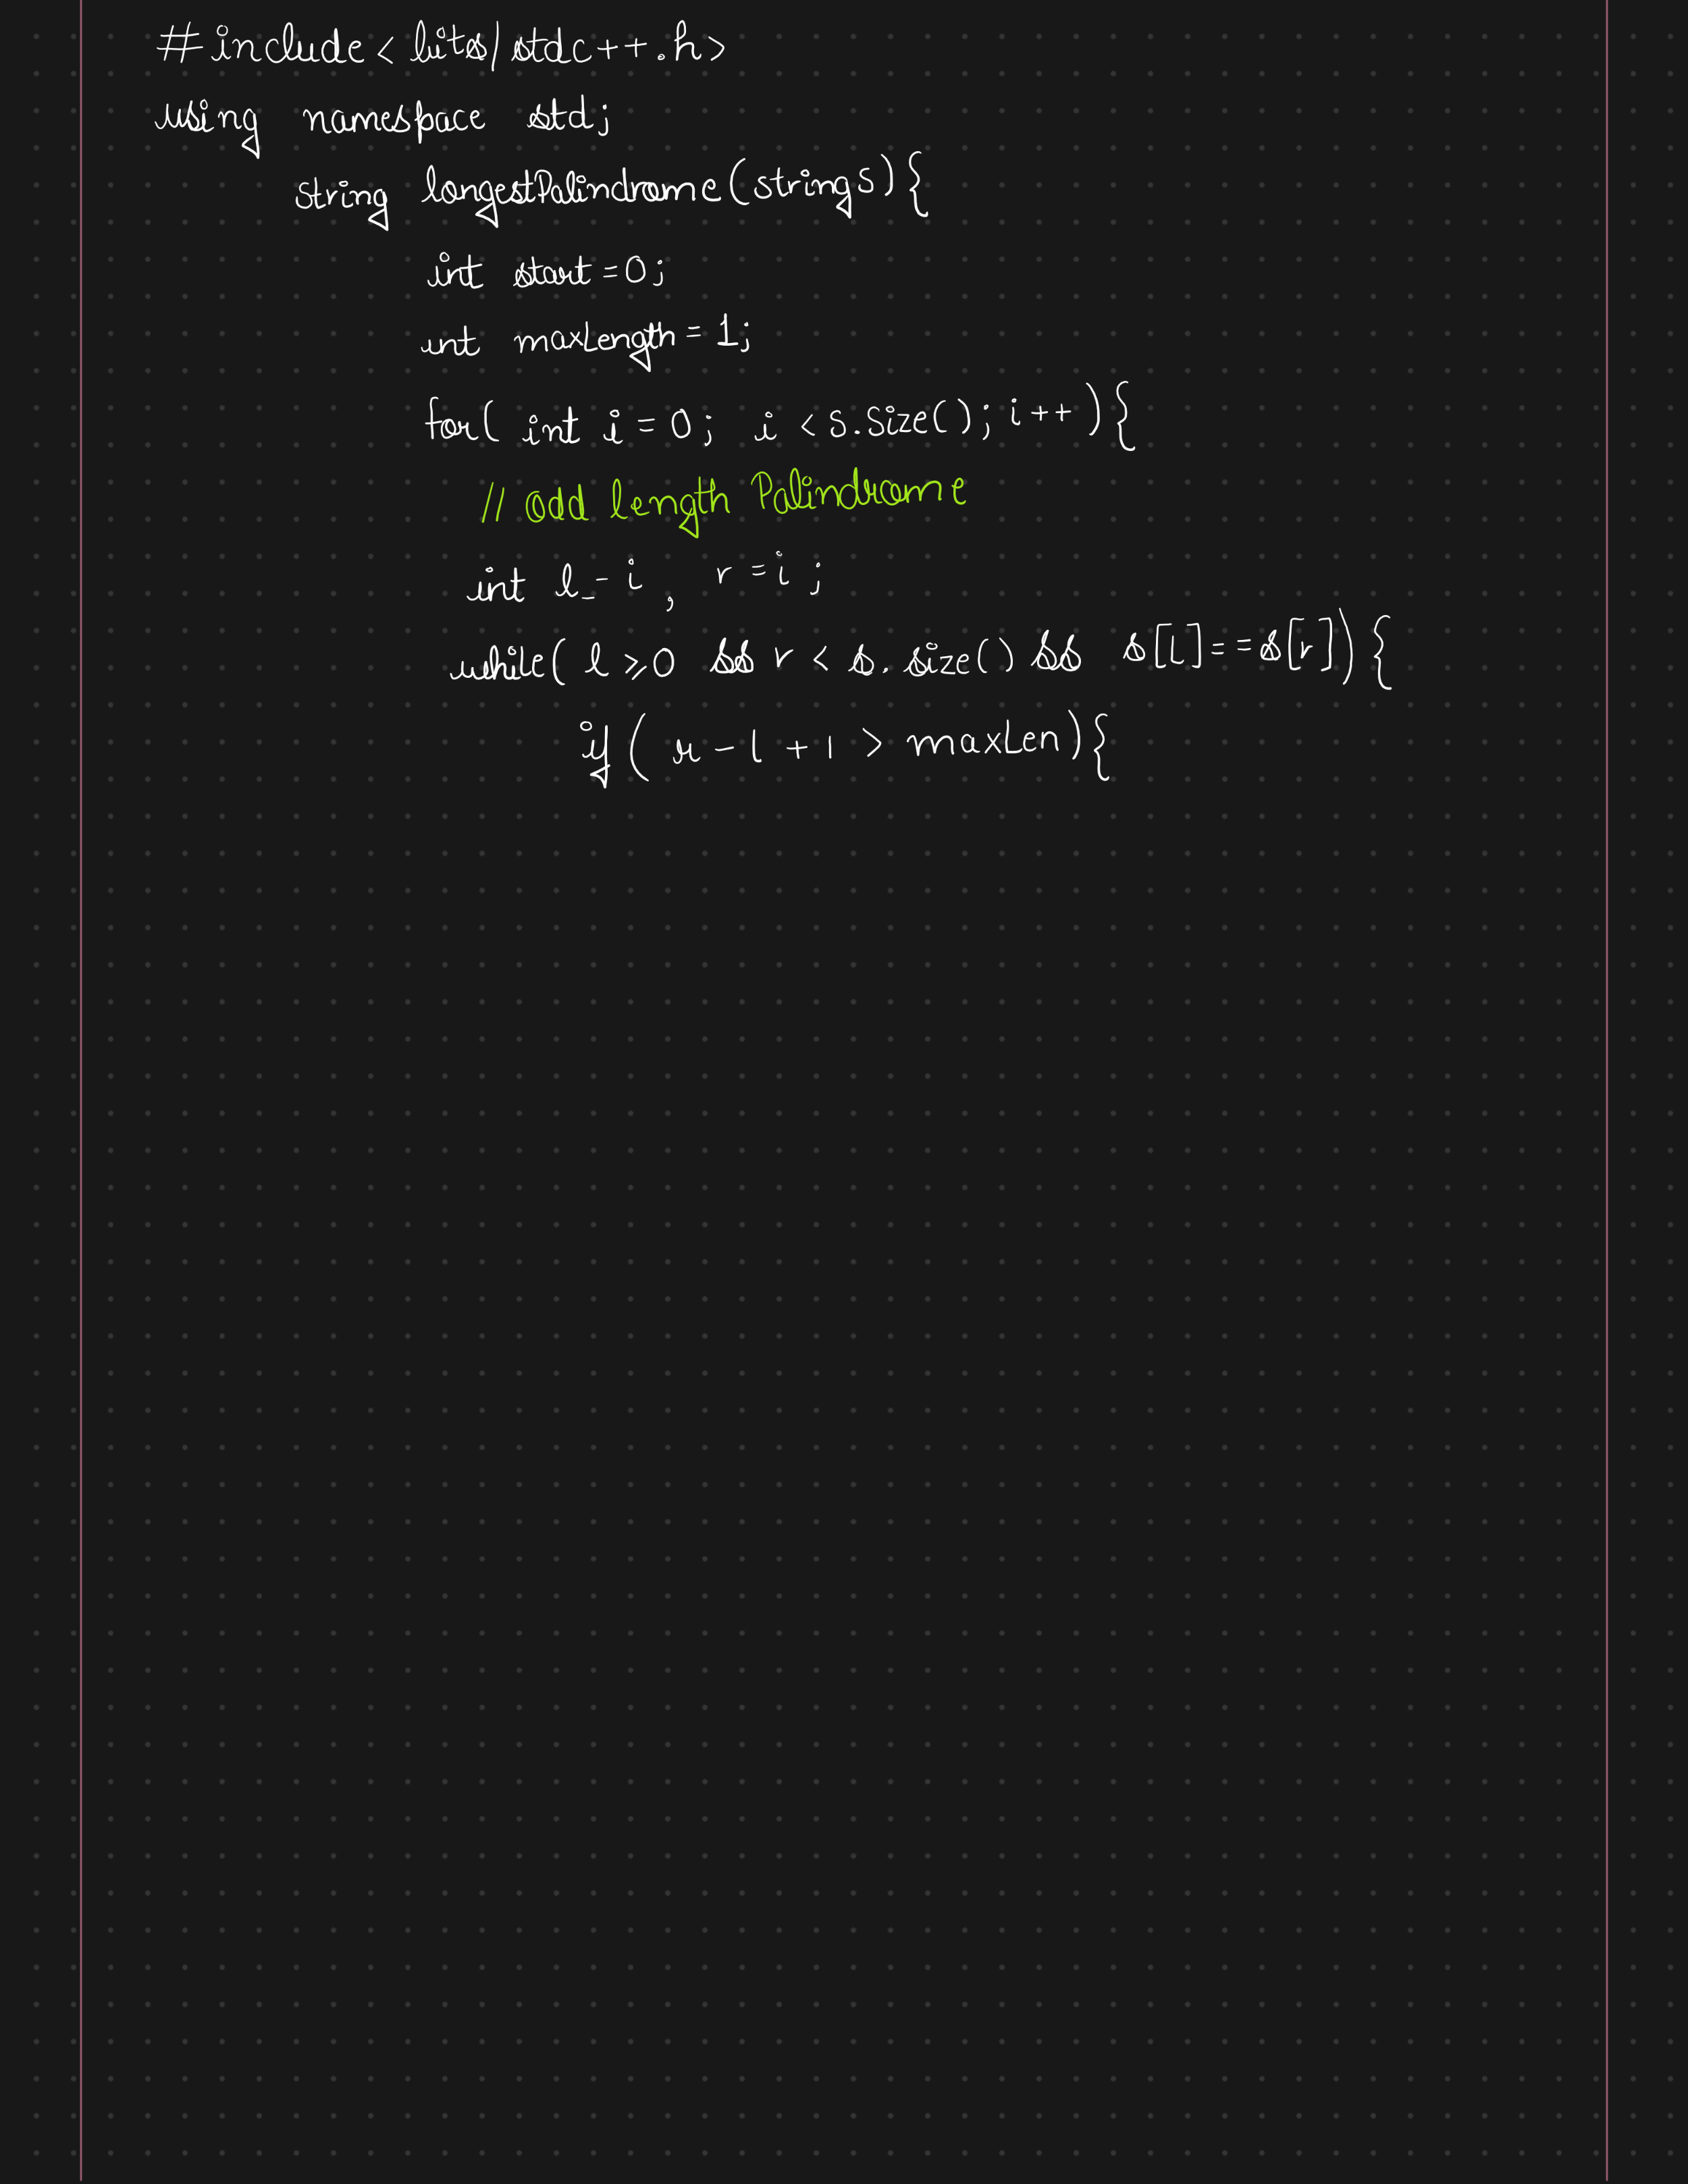 #include<bits/stdc++.h>
using namespace std;
string longestPalindrome(string s){
int start=0;
int maxLength=1;
for( int i=0; i<s.size(); i++){
// odd length Palindrome
int l=i, r=i;
while( l≥0 && r<s.size() && s[l]==s[r]){
if( r-l+1 > maxLen){